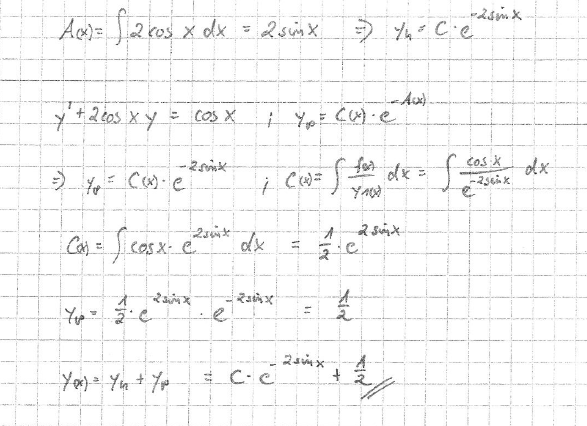 A(x) = ∫ 2 cos x dx = 2 sin x ⇒ y_h = C · e^{-2 sin x}
y' + 2 cos x y = cos x ; y_p = C(x) · e^{-A(x)}
⇒ y_p = C(x) · e^{-2 sin x} ; C(x) = ∫ f(x)/y_1(x) dx = ∫ cos x / e^{-2 sin x} dx
C(x) = ∫ cos x · e^{2 sin x} dx = 1/2 · e^{2 sin x}
y_p = 1/2 · e^{2 sin x} · e^{-2 sin x} = 1/2
y(x) = y_h + y_p = C · e^{-2 sin x} + 1/2